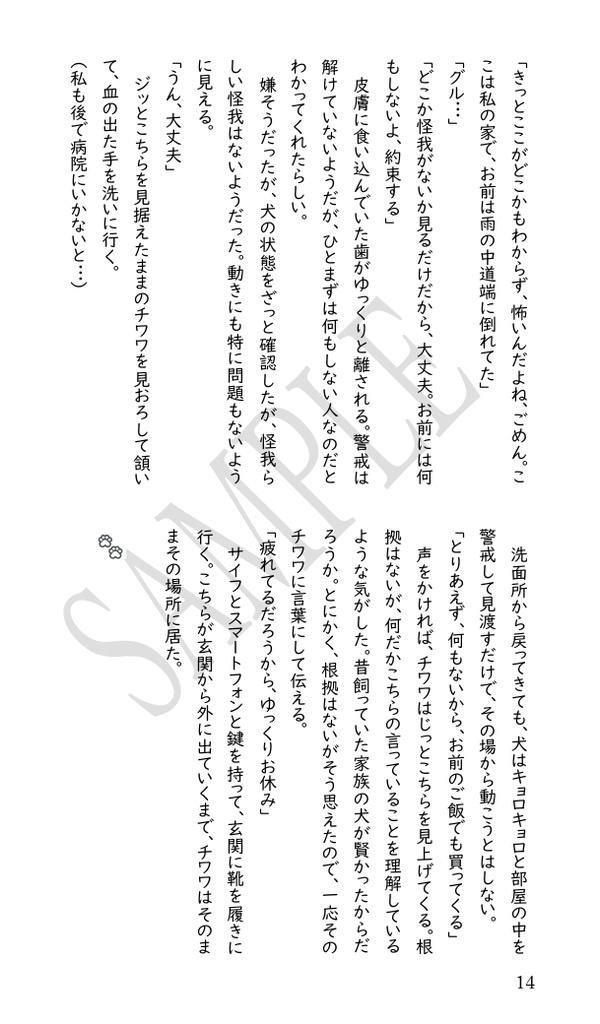 「きっとここがどこかもわからず、怖いんだよね、ごめん。こ
こは私の家で、お前は雨の中道端に倒れてた」
「グル…」
「どこか怪我がないか見るだけだから、大丈夫。お前には何
もしないよ、約束する」
皮膚に食い込んでいた歯がゆっくりと離される。警戒は
解けていないようだが、ひとまずは何もしない人なのだと
わかってくれたらしい。
嫌そうだったが、犬の状態をざっと確認したが、怪我ら
しい怪我はないようだった。動きにも特に問題もないよう
に見える。
「うん、大丈夫」
ジッとこちらを見据えたままのチワワを見おろして頷い
て、血の出た手を洗いに行く。
(私も後で病院にいかないと…)
洗面所から戻ってきても、犬はキョロキョロと部屋の中を
警戒して見渡すだけで、その場から動こうとはしない。
「とりあえず、何もないから、お前のご飯でも買ってくる」
声をかければ、チワワはじっとこちらを見上げてくる。根
拠はないが、何だかこちらの言っていることを理解している
ような気がした。昔飼っていた家族の犬が賢かったからだ
ろうか。とにかく、根拠はないがそう思えたので、一応その
チワワに言葉にして伝える。
「疲れてるだろうから、ゆっくりお休み」
サイフとスマートフォンと鍵を持って、玄関に靴を履きに
行く。こちらが玄関から外に出ていくまで、チワワはそのま
まその場所に居た。
SAMPLE
14